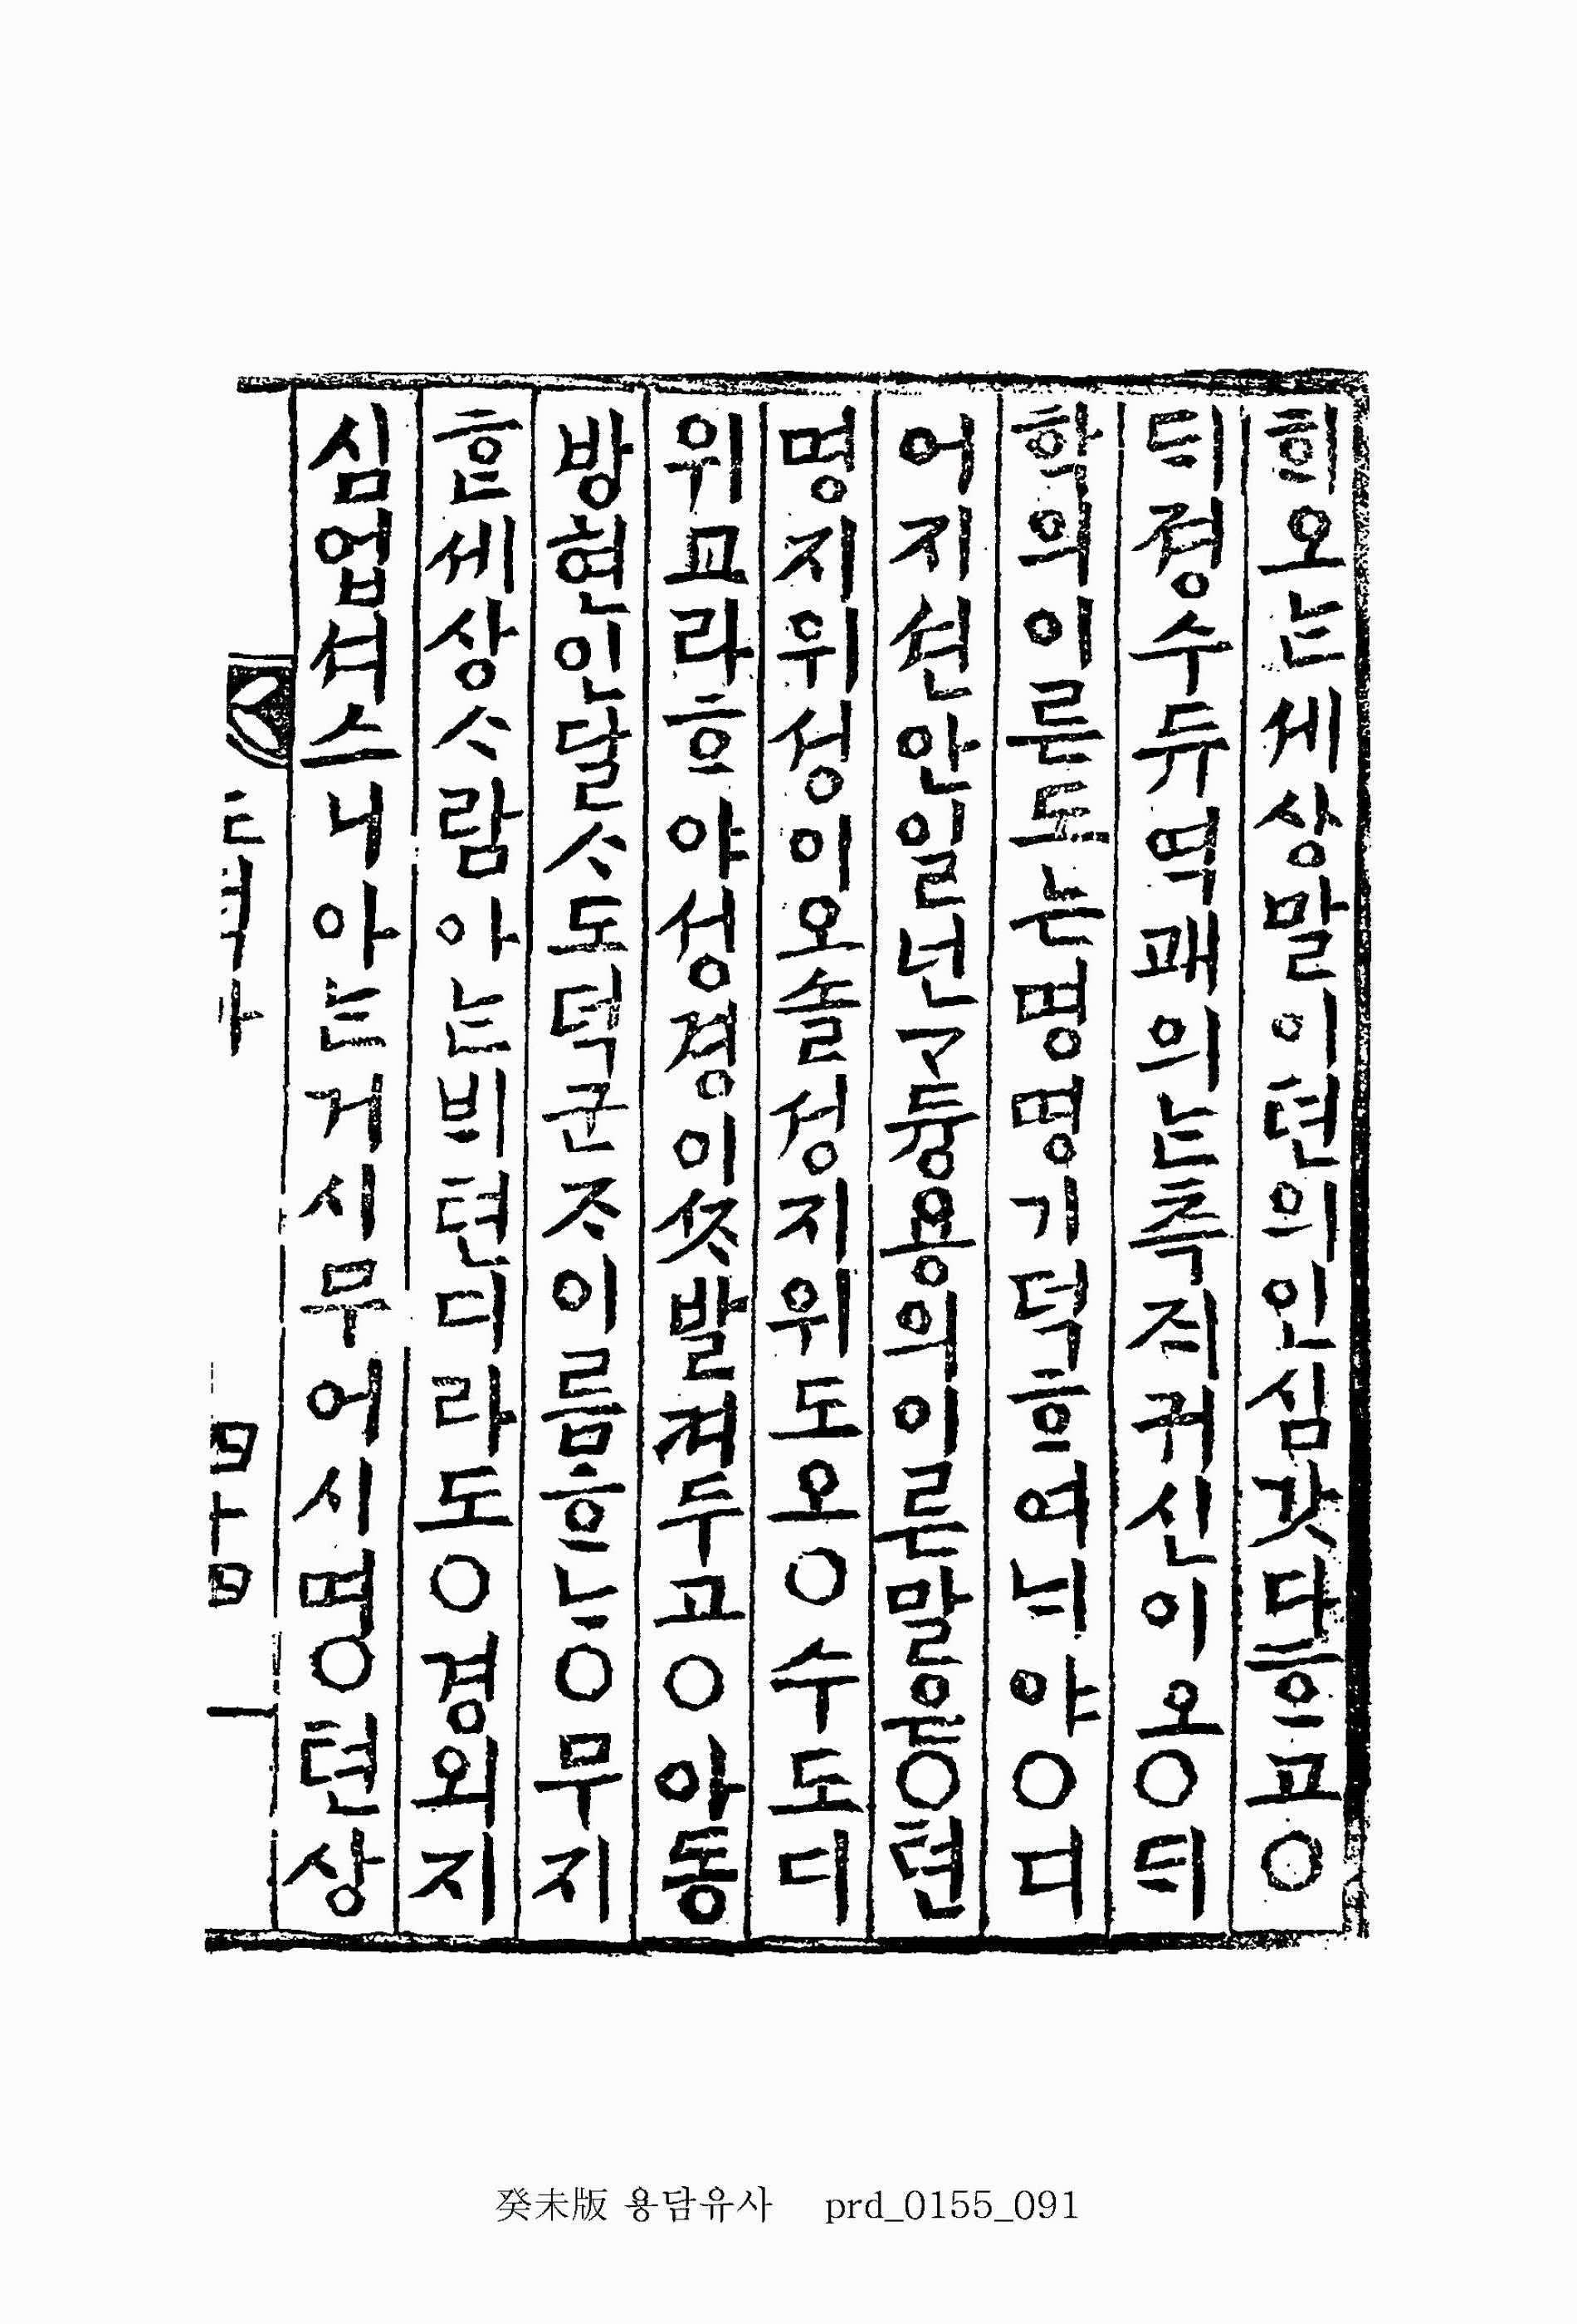 희오ᄂᆞᆫ세상말이텬의인심갓다ᄒᆞ고○
ᄃᆡ졍수듀역괘의ᄂᆞᆫ측ᄌᆡ귀신이오○ᄃᆡ
학의이른도는명명기덕ᄒᆞ여ᄂᆡ야○디
어지션안일넌ᄀᆞ듕용의이른말은○텬
명지위셩이오솔셩지위도오○수도디
위교라ᄒᆞ야셩경이ᄌᆞ발켜두고○아동
방현인달ᄉᆞ도덕군ᄌᆞ이름ᄒᆞ나○무지
ᄒᆞᆫ세상ᄉᆞ람아ᄂᆞᆫᄇᆡ텬디라도○경외지
심업셔스니아ᄂᆞᆫ거시무어시명○텬상
癸未版 용담유사 prd_0155_091